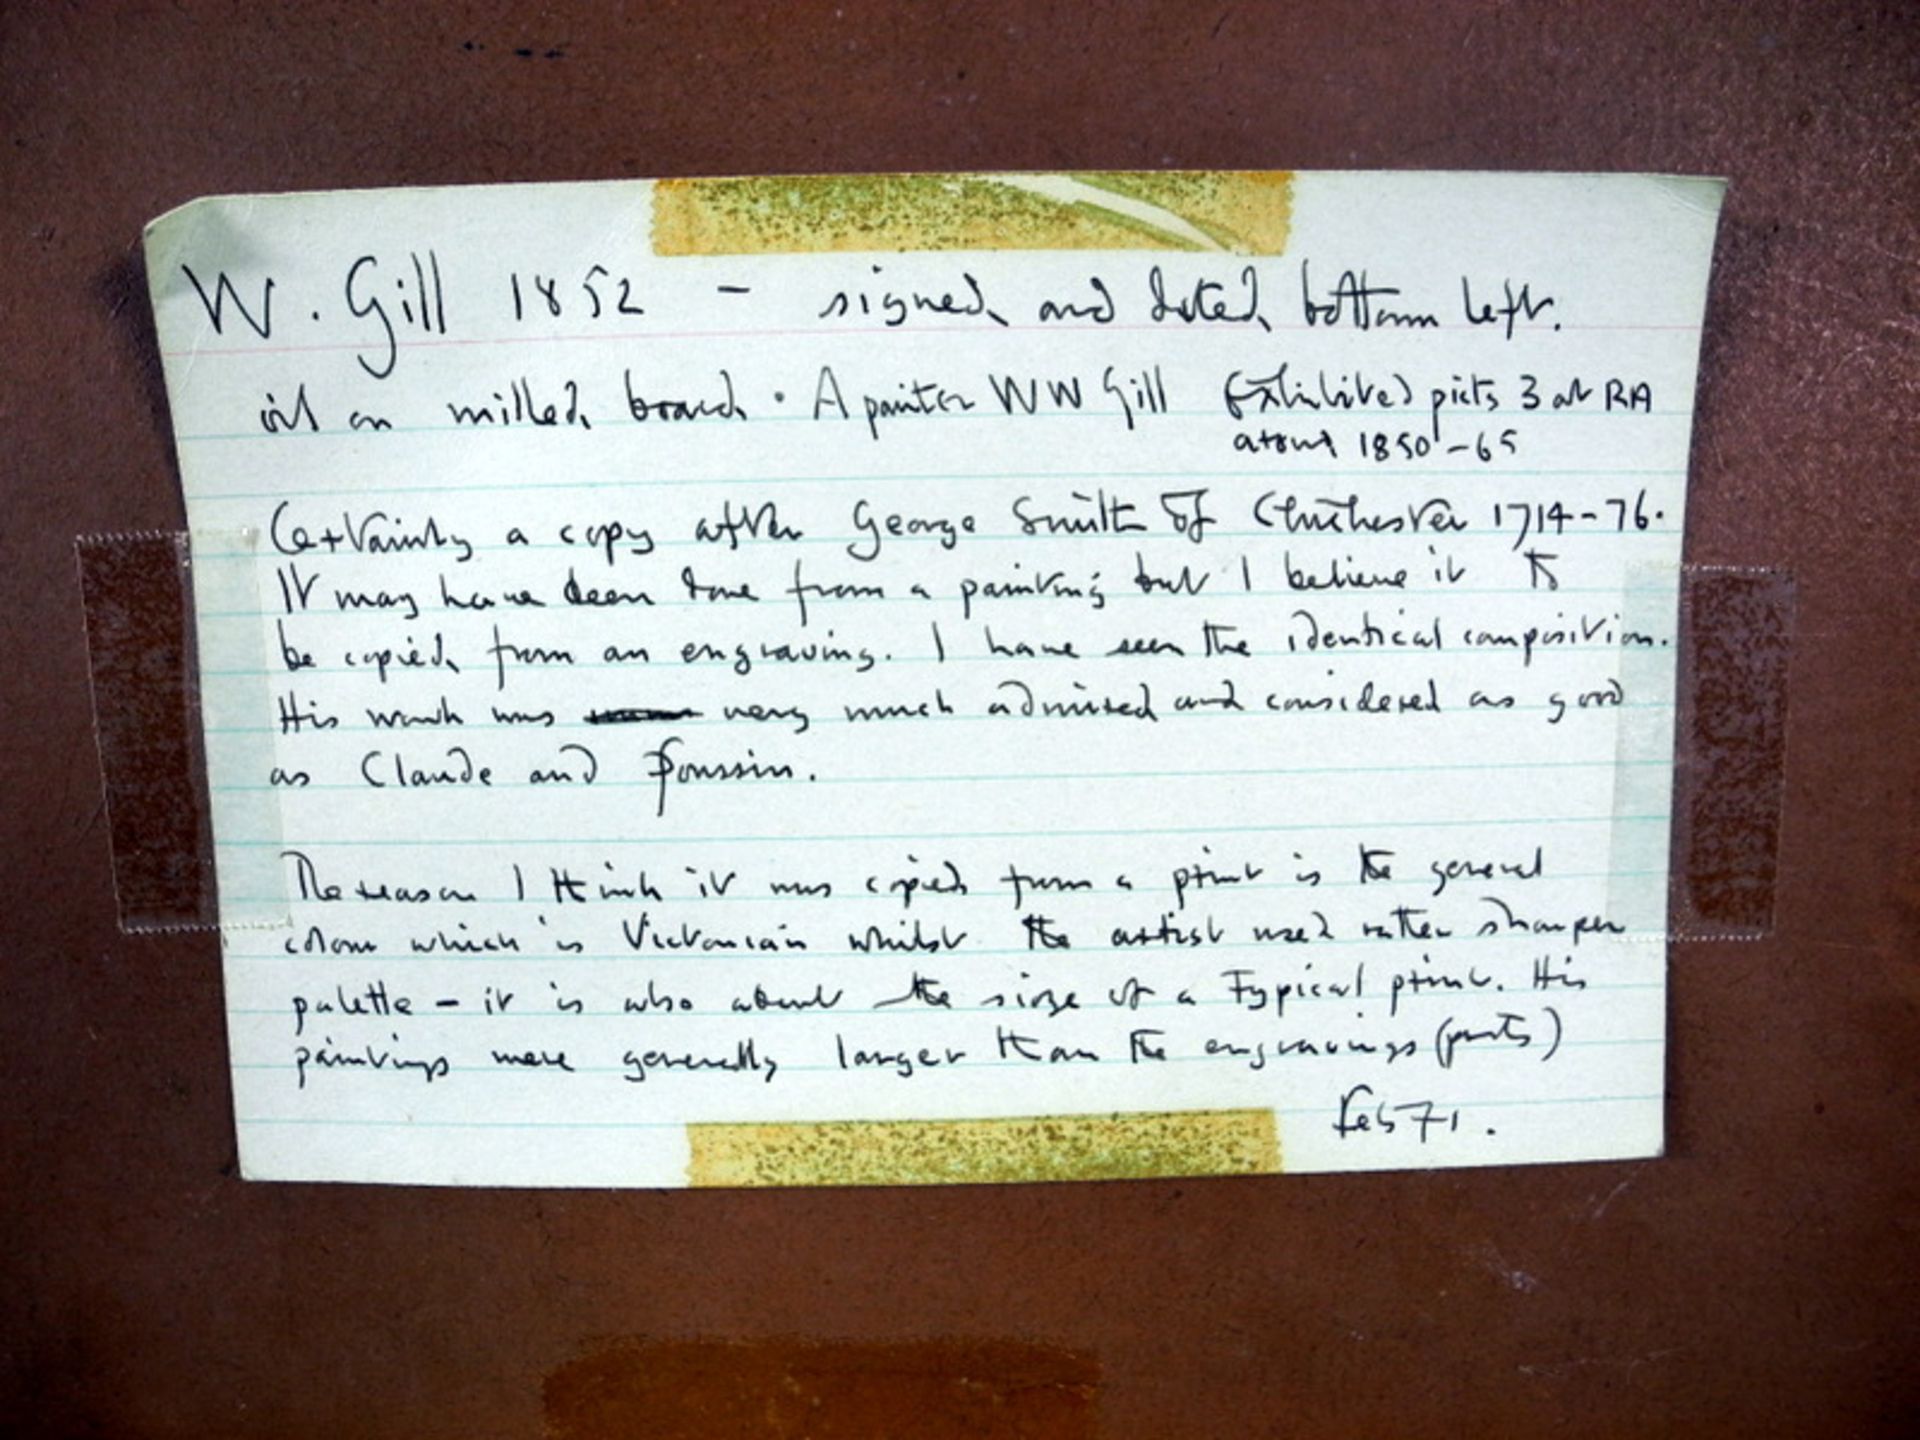 W. Gill 1852 - signed and dated bottom left.
oil on milled board. A painter WW Gill Exhibited picts 3 at RA
about 1850-65
Certainly a copy after George Smith of Chichester 1714-76.
It may have been done from a painting but I believe it to
be copied from an engraving. I have seen the identical composition.
His work was very much admired and considered as good
as Claude and Poussin.
The reason I think it was copied from a print is the general
colour which is Victorian whilst the artist used rather sharper
palette - it is also about the size of a typical print. His
paintings were generally larger than the engravings (prints)
Feb 71.